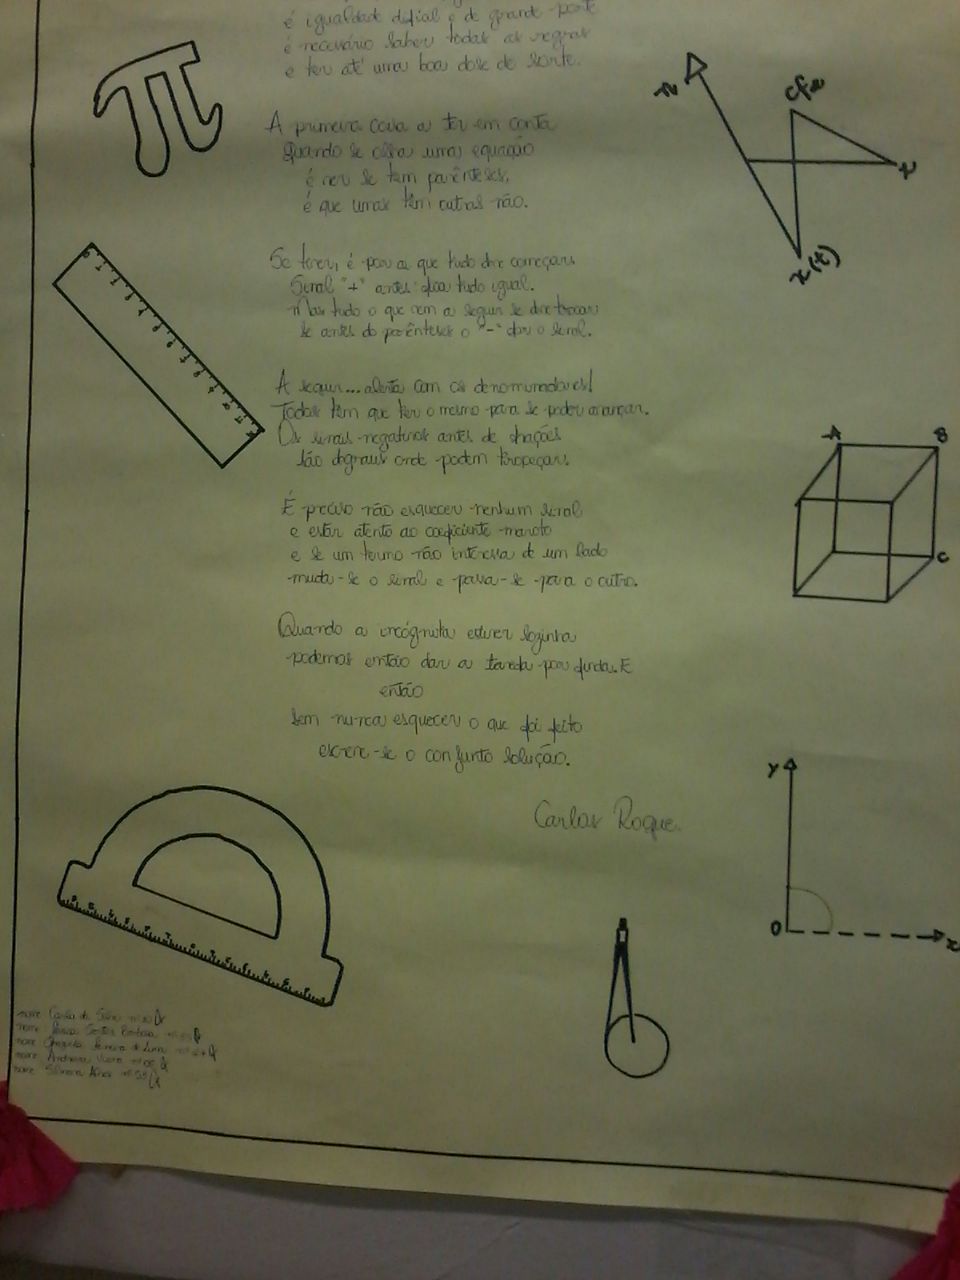 é igualdade difícil e de grande porte
é necessário saber todas as regras
e ter até uma boa dose de sorte.
A primeira coisa a ter em conta
Quando se olha uma equação
é ver se tem parênteses,
é que umas têm outras não.
Se tiver, é por aí que tudo deve começar.
Sinal "+" antes: fica tudo igual.
Mas tudo o que vem a seguir se deve trocar
se antes do parênteses o "-" for o sinal.
A seguir... alerta com os denominadores!
Todos têm que ter o mesmo para se poder avançar.
Os sinais negativos antes de frações
são degraus onde podem tropeçar.
É preciso não esquecer nenhum sinal
e estar atento ao coeficiente maroto
e se um termo não interessa de um lado
muda-se o sinal e passa-se para o outro.
Quando a incógnita estiver sozinha
podemos então dar a tarefa por finda. E
então
sem nunca esquecer o que foi feito
escreve-se o conjunto solução.
Carlos Roque.
A
B
C
Y
O
x
x(t)
nome
nome
nome
nome Andreia
nome